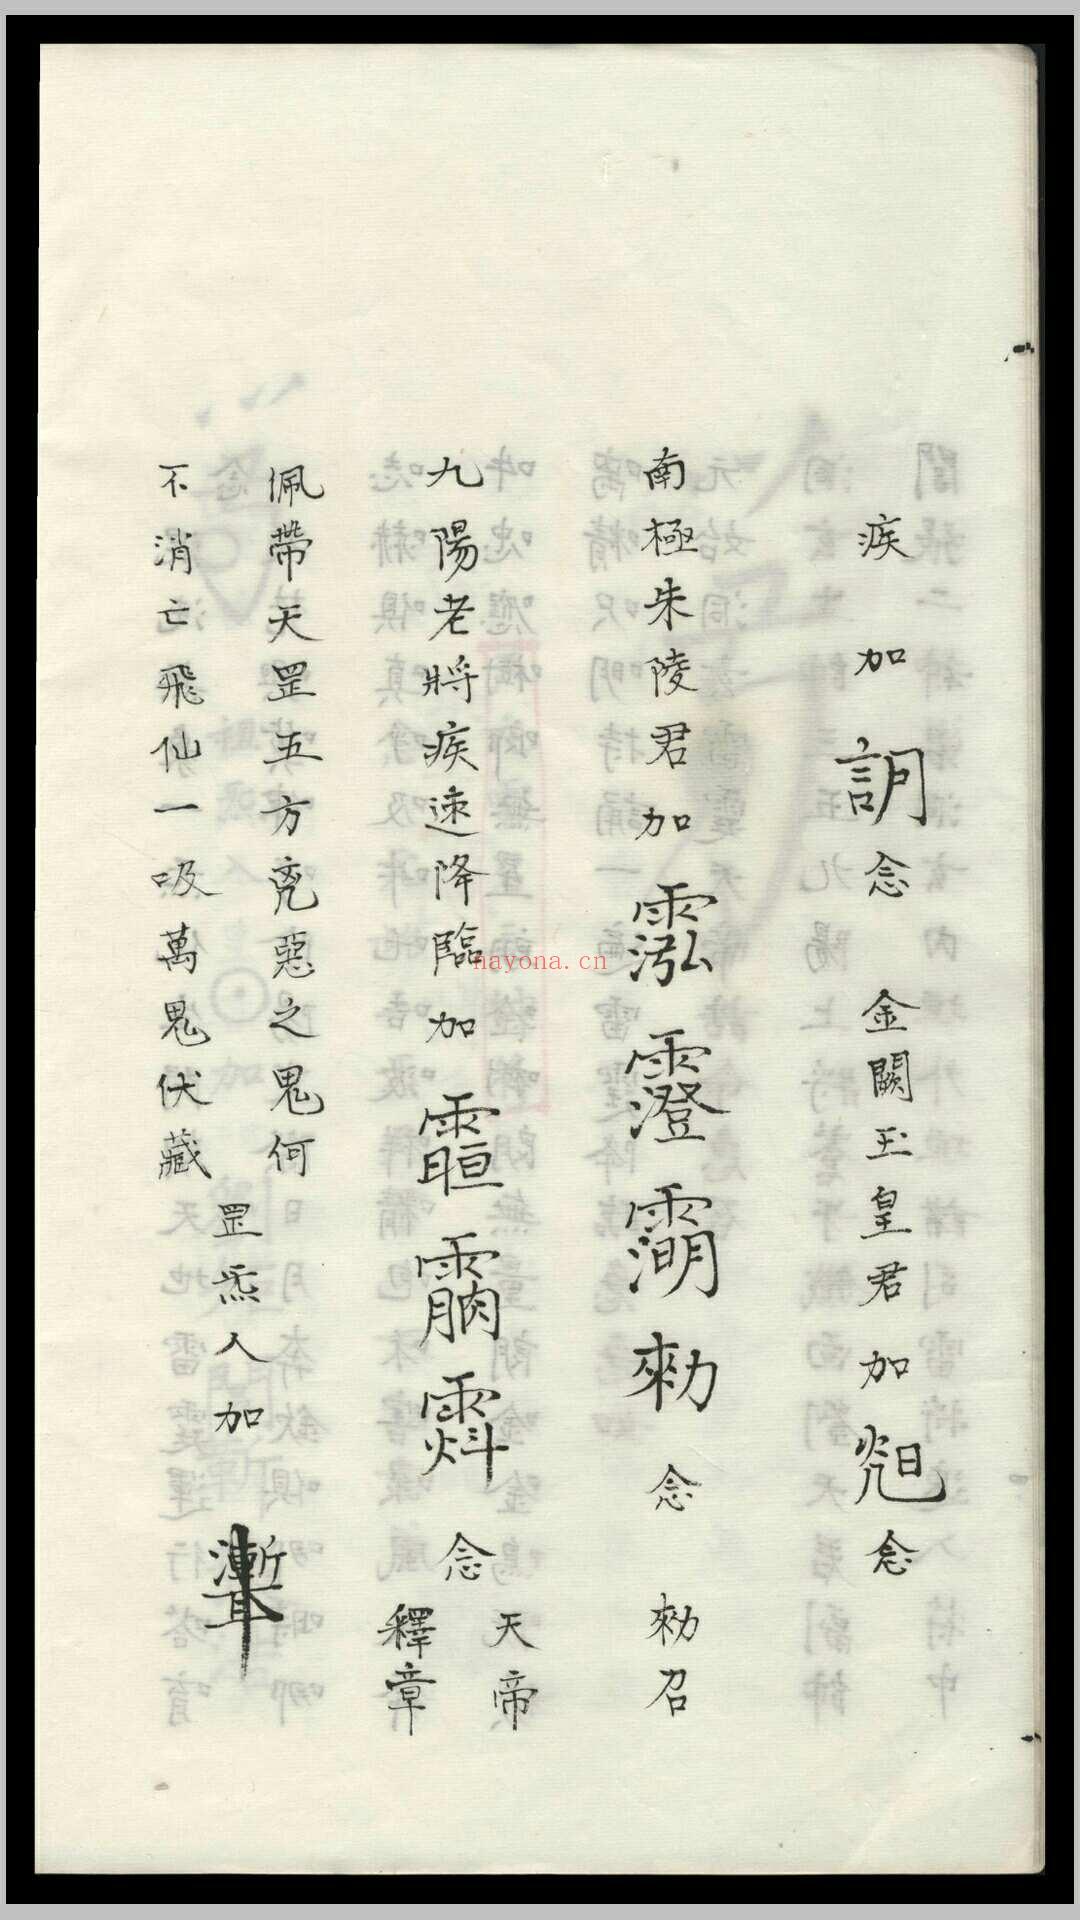 疾加念金闕玉皇君加念
南極朱陵君加勑念勑召
九陽老將疾速降臨加念天帝
釋章
佩帶天罡五方兇惡之鬼何
不消亡飛仙一吸萬鬼伏藏
罡炁入加
nayona.cn